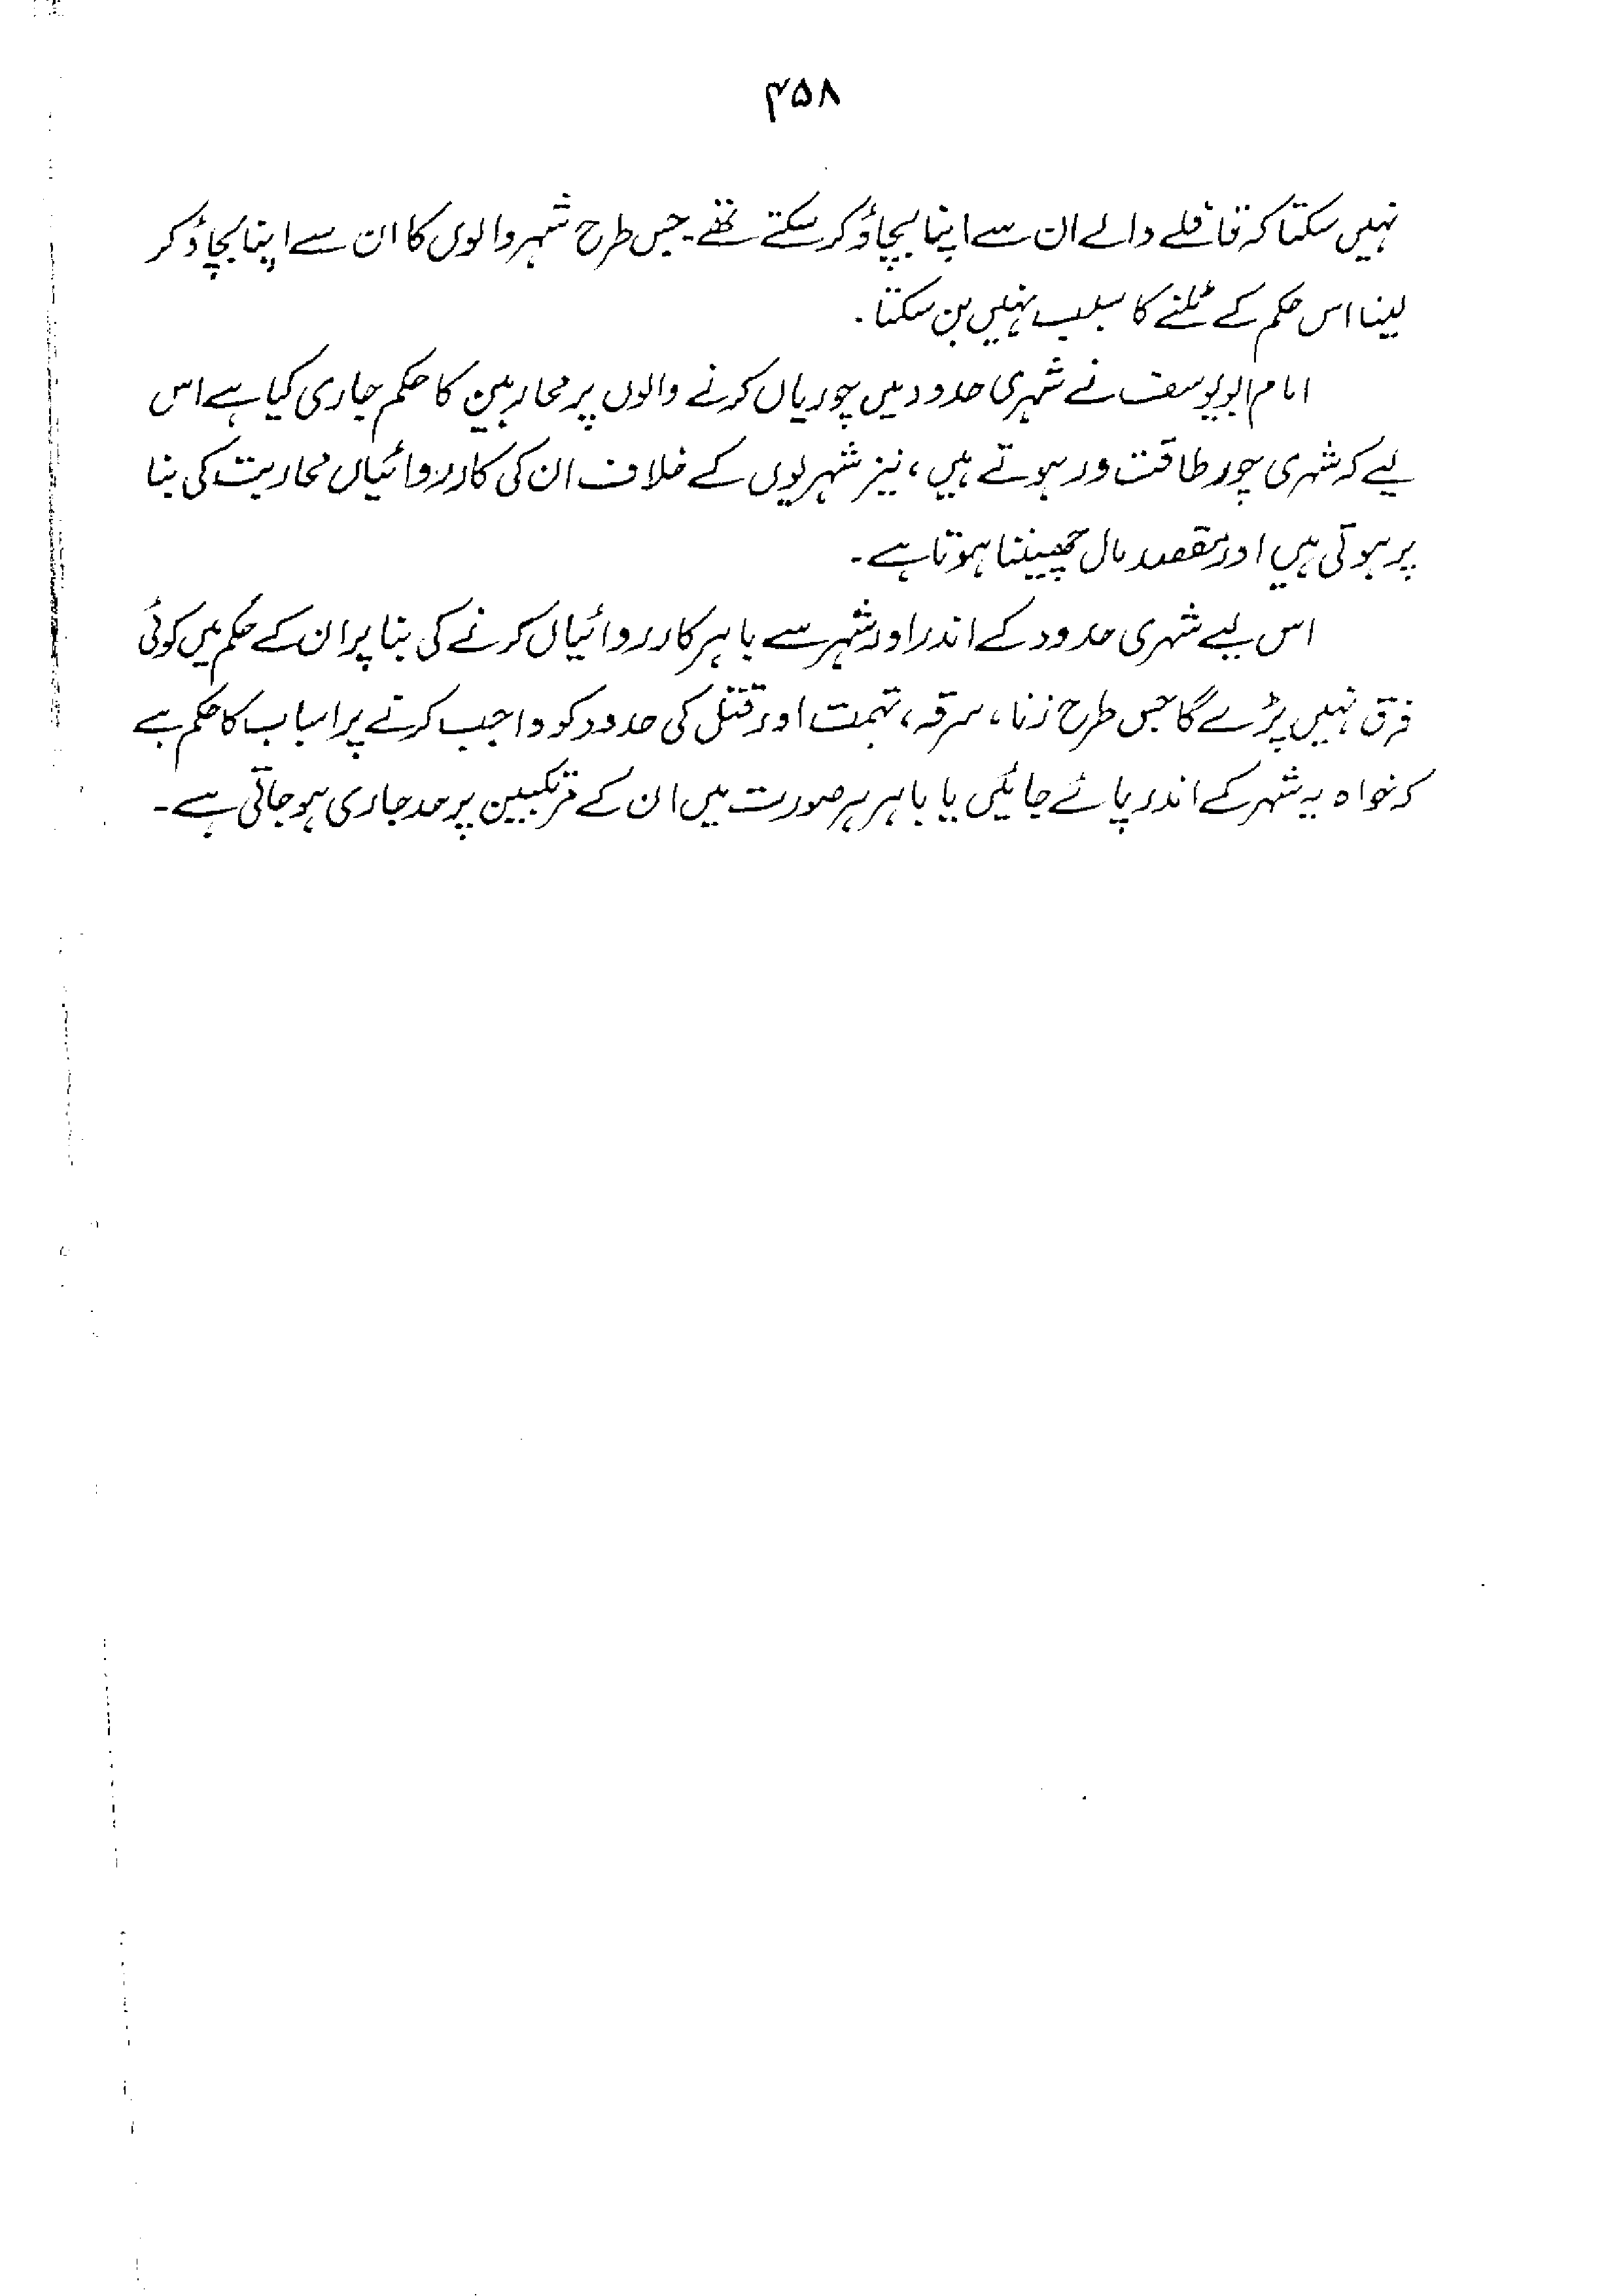 ۴۵۸
نہیں سکتا کہ قافلے والے ان سے اپنا بچاؤ کر سکتے تھے۔ جس طرح شہر والوں کا ان سے اپنا بچاؤ کر
لینا اس حکم کے ٹلنے کا سبب نہیں بن سکتا۔
امام ابویوسف نے شہری حدود میں چوریاں کرنے والوں پر محاربین کا حکم جاری کیا ہے اس
لیے کہ شہری چور طاقت ور ہوتے ہیں، نیز شہریوں کے خلاف ان کی کارروائیاں محاربت کی بنا
پر ہوتی ہیں اور مقصد مال چھیننا ہوتا ہے۔
اس لیے شہری حدود کے اندر اور شہر سے باہر کارروائیاں کرنے کی بنا پر ان کے حکم میں کوئی
فرق نہیں پڑے گا جس طرح زنا، سرقہ، تہمت اور قتل کی حدود کو واجب کرنے پر اسباب کا حکم ہے
کہ خواہ یہ شہر کے اندر پائے جائیں یا باہر ہر صورت میں ان کے مرتکبین پر حد جاری ہو جاتی ہے۔